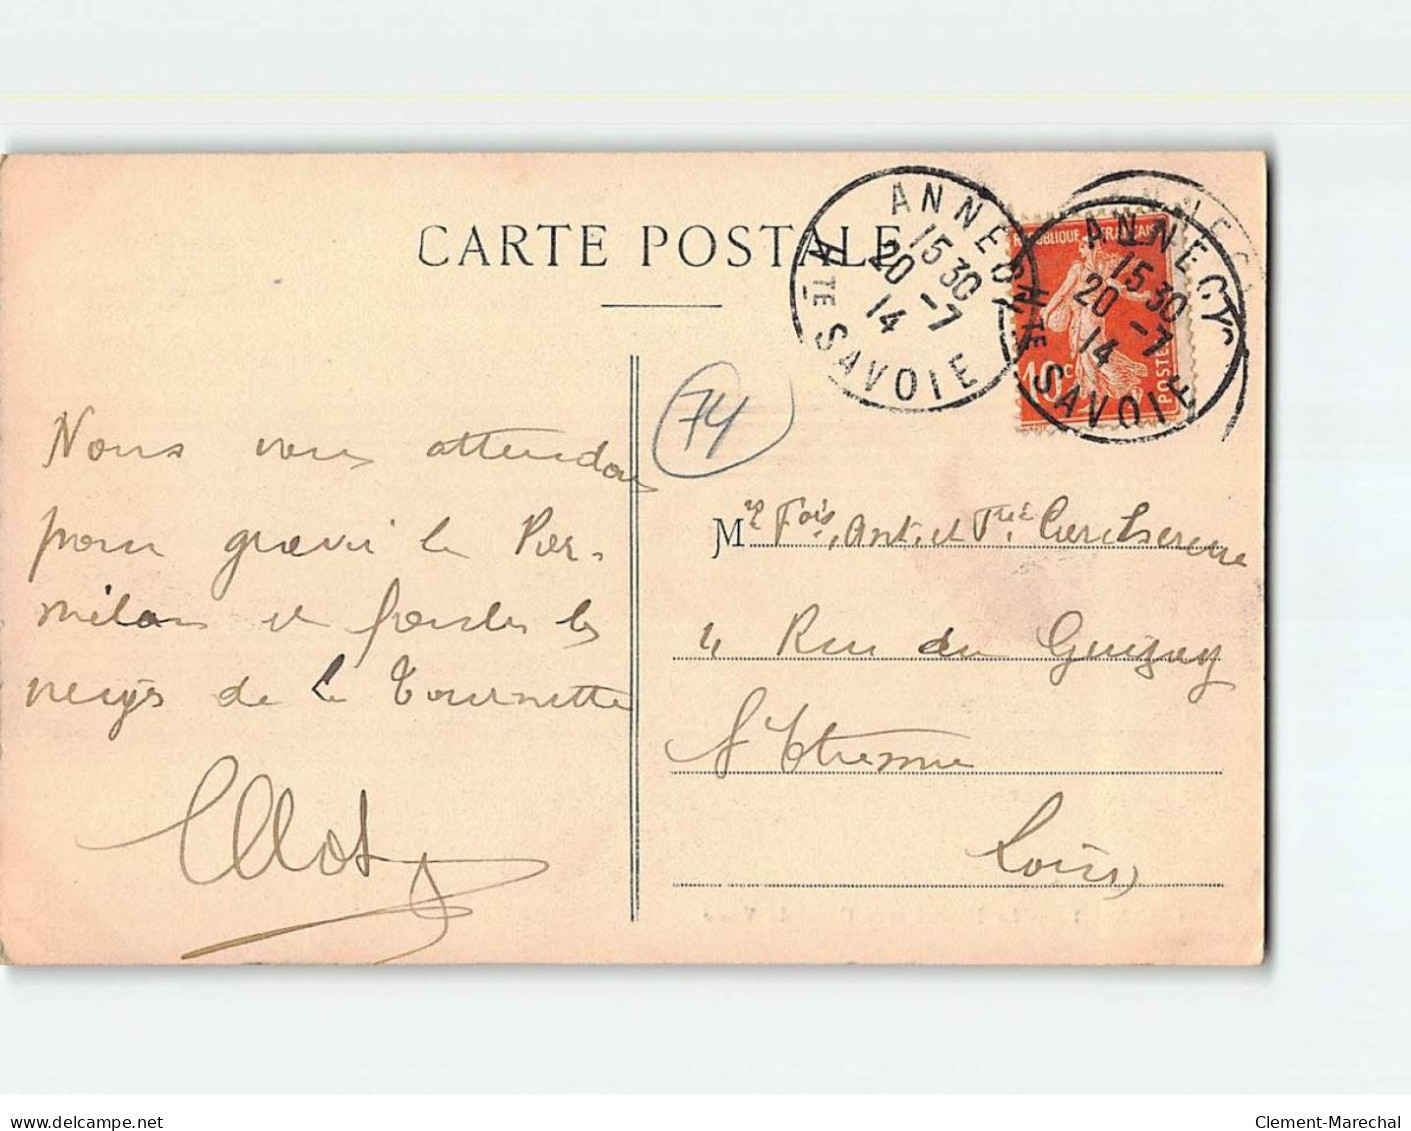 CARTE POSTALE
ANNECY
15 30
20 - 7
14
HTE SAVOIE
ANNECY
15 30
20 - 7
14
HTE SAVOIE
RÉPUBLIQUE FRANÇAISE
10c
POSTES
74
Nous vous attendons
pour gravir le Par-
milan et fondre les
neiges de la Tournette
Mr Fois, Ant. et
4 Rue du Guizay
St Etienne
Loire
delcampe.net
Clement-Marechal